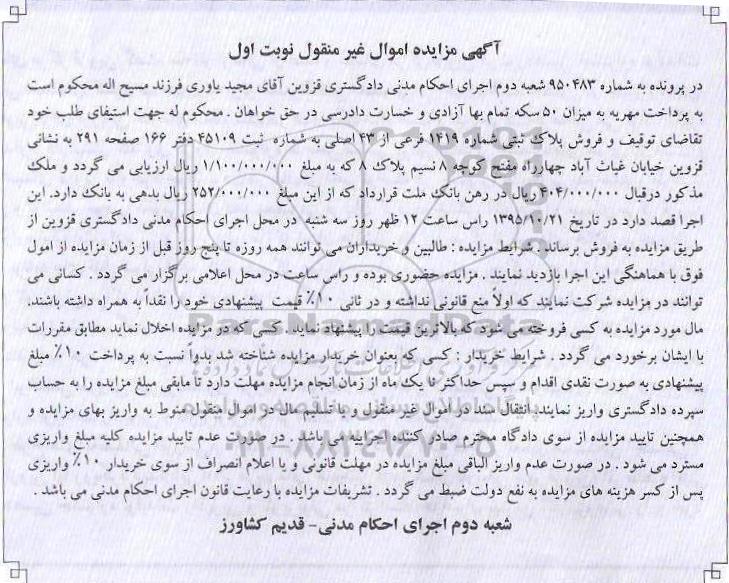 آگهی مزایده اموال غیر منقول نوبت اول
در پرونده به شماره ۹۵۰۴۸۳ شعبه دوم اجرای احکام مدنی دادگستری قزوین آقای مجید یاوری فرزند مسیح اله محکوم است
به پرداخت مهریه به میزان ۵۰ سکه تمام بها آزادی و خسارت دادرسی در حق خواهان . محکوم له جهت استیفای طلب خود
تقاضای توقیف و فروش پلاک ثبتی شماره ۱۴۱۹ فرعی از ۴۳ اصلی به شماره ثبت ۴۵۱۰۹ دفتر ۱۶۶ صفحه ۲۹۱ به نشانی
قزوین خیابان غیاث آباد چهارراه مفتح کوچه ۸ نسیم پلاک ۸ که به مبلغ ۱/۱۰۰/۰۰۰/۰۰۰ ریال ارزیابی می گردد و ملک
مذکور درقبال ۴۰۴/۰۰۰/۰۰۰ ریال در رهن بانک ملت قرارداد که از این مبلغ ۲۵۲/۰۰۰/۰۰۰ ریال بدهی به بانک دارد. این
اجرا قصد دارد در تاریخ ۱۳۹۵/۱۰/۲۱ راس ساعت ۱۲ ظهر روز سه شنبه در محل اجرای احکام مدنی دادگستری قزوین از
طریق مزایده به فروش برساند . شرایط مزایده : طالبین و خریداران می توانند همه روزه تا پنج روز قبل از زمان مزایده از امول
فوق با هماهنگی این اجرا بازدید نمایند . مزایده حضوری بوده و راس ساعت در محل اعلامی برگزار می گردد . کسانی می
توانند در مزایده شرکت نمایند که اولاً منع قانونی نداشته و در ثانی ۱۰٪ قیمت پیشنهادی خود را نقداً به همراه داشته باشند.
مال مورد مزایده به کسی فروخته می شود که بالاترین قیمت را پیشنهاد نماید . کسی که در مزایده اخلال نماید مطابق مقررات
با ایشان برخورد می گردد . شرایط خریدار : کسی که بعنوان خریدار مزایده شناخته شد بدواً نسبت به پرداخت ۱۰٪ مبلغ
پیشنهادی به صورت نقدی اقدام و سپس حداکثر تا یک ماه از زمان انجام مزایده مهلت دارد تا مابقی مبلغ مزایده را به حساب
سپرده دادگستری واریز نمایند. انتقال سند در اموال غیر منقول و یا تسلیم مال در اموال منقول منوط به واریز بهای مزایده و
همچنین تایید مزایده از سوی دادگاه محترم صادر کننده اجراییه می باشد . در صورت عدم تایید مزایده کلیه مبلغ واریزی
مسترد می شود . در صورت عدم واریز الباقی مبلغ مزایده در مهلت قانونی و یا اعلام انصراف از سوی خریدار ۱۰٪ واریزی
پس از کسر هزینه های مزایده به نفع دولت ضبط می گردد . تشریفات مزایده با رعایت قانون اجرای احکام مدنی می باشد .
شعبه دوم اجرای احکام مدنی- قدیم کشاورز
ParsNamadData
۰۲۱-۸۸۳۴۹۶۷۰-۵